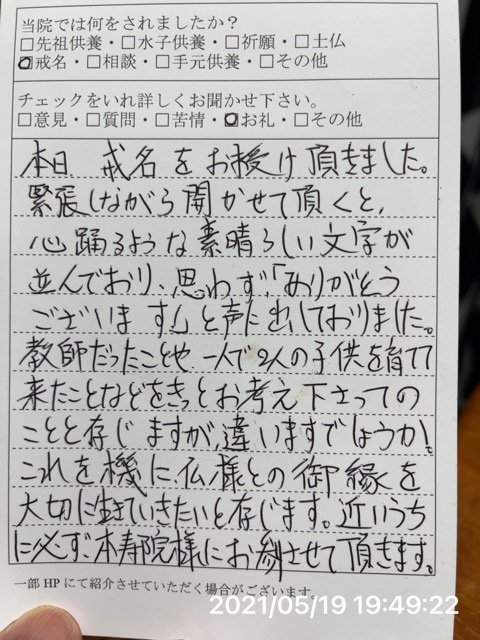 当院では何をされましたか？
□先祖供養・□水子供養・□祈願・□土仏
□戒名・□相談・□手元供養・□その他
チェックをいれ詳しくお聞かせ下さい。
□意見・□質問・□苦情・□お礼・□その他
本日、戒名をお授け頂きました。
緊張しながら開かせて頂くと、
心踊るような素晴らしい文字が
並んでおり、思わず「ありがとう
ございます」と声に出しておりました。
教師だったことや一人で2人の子供を育てて
来たことなどをきっとお考え下さっての
ことと存じますが、違いますでしょうか！
これを機に仏様との御縁を
大切に生きていきたいと存じます。近いうち
に必ず、本寿院様にお参させて頂きます。
一部HPにて紹介させていただく場合がございます。
2021/05/19 19:49:22